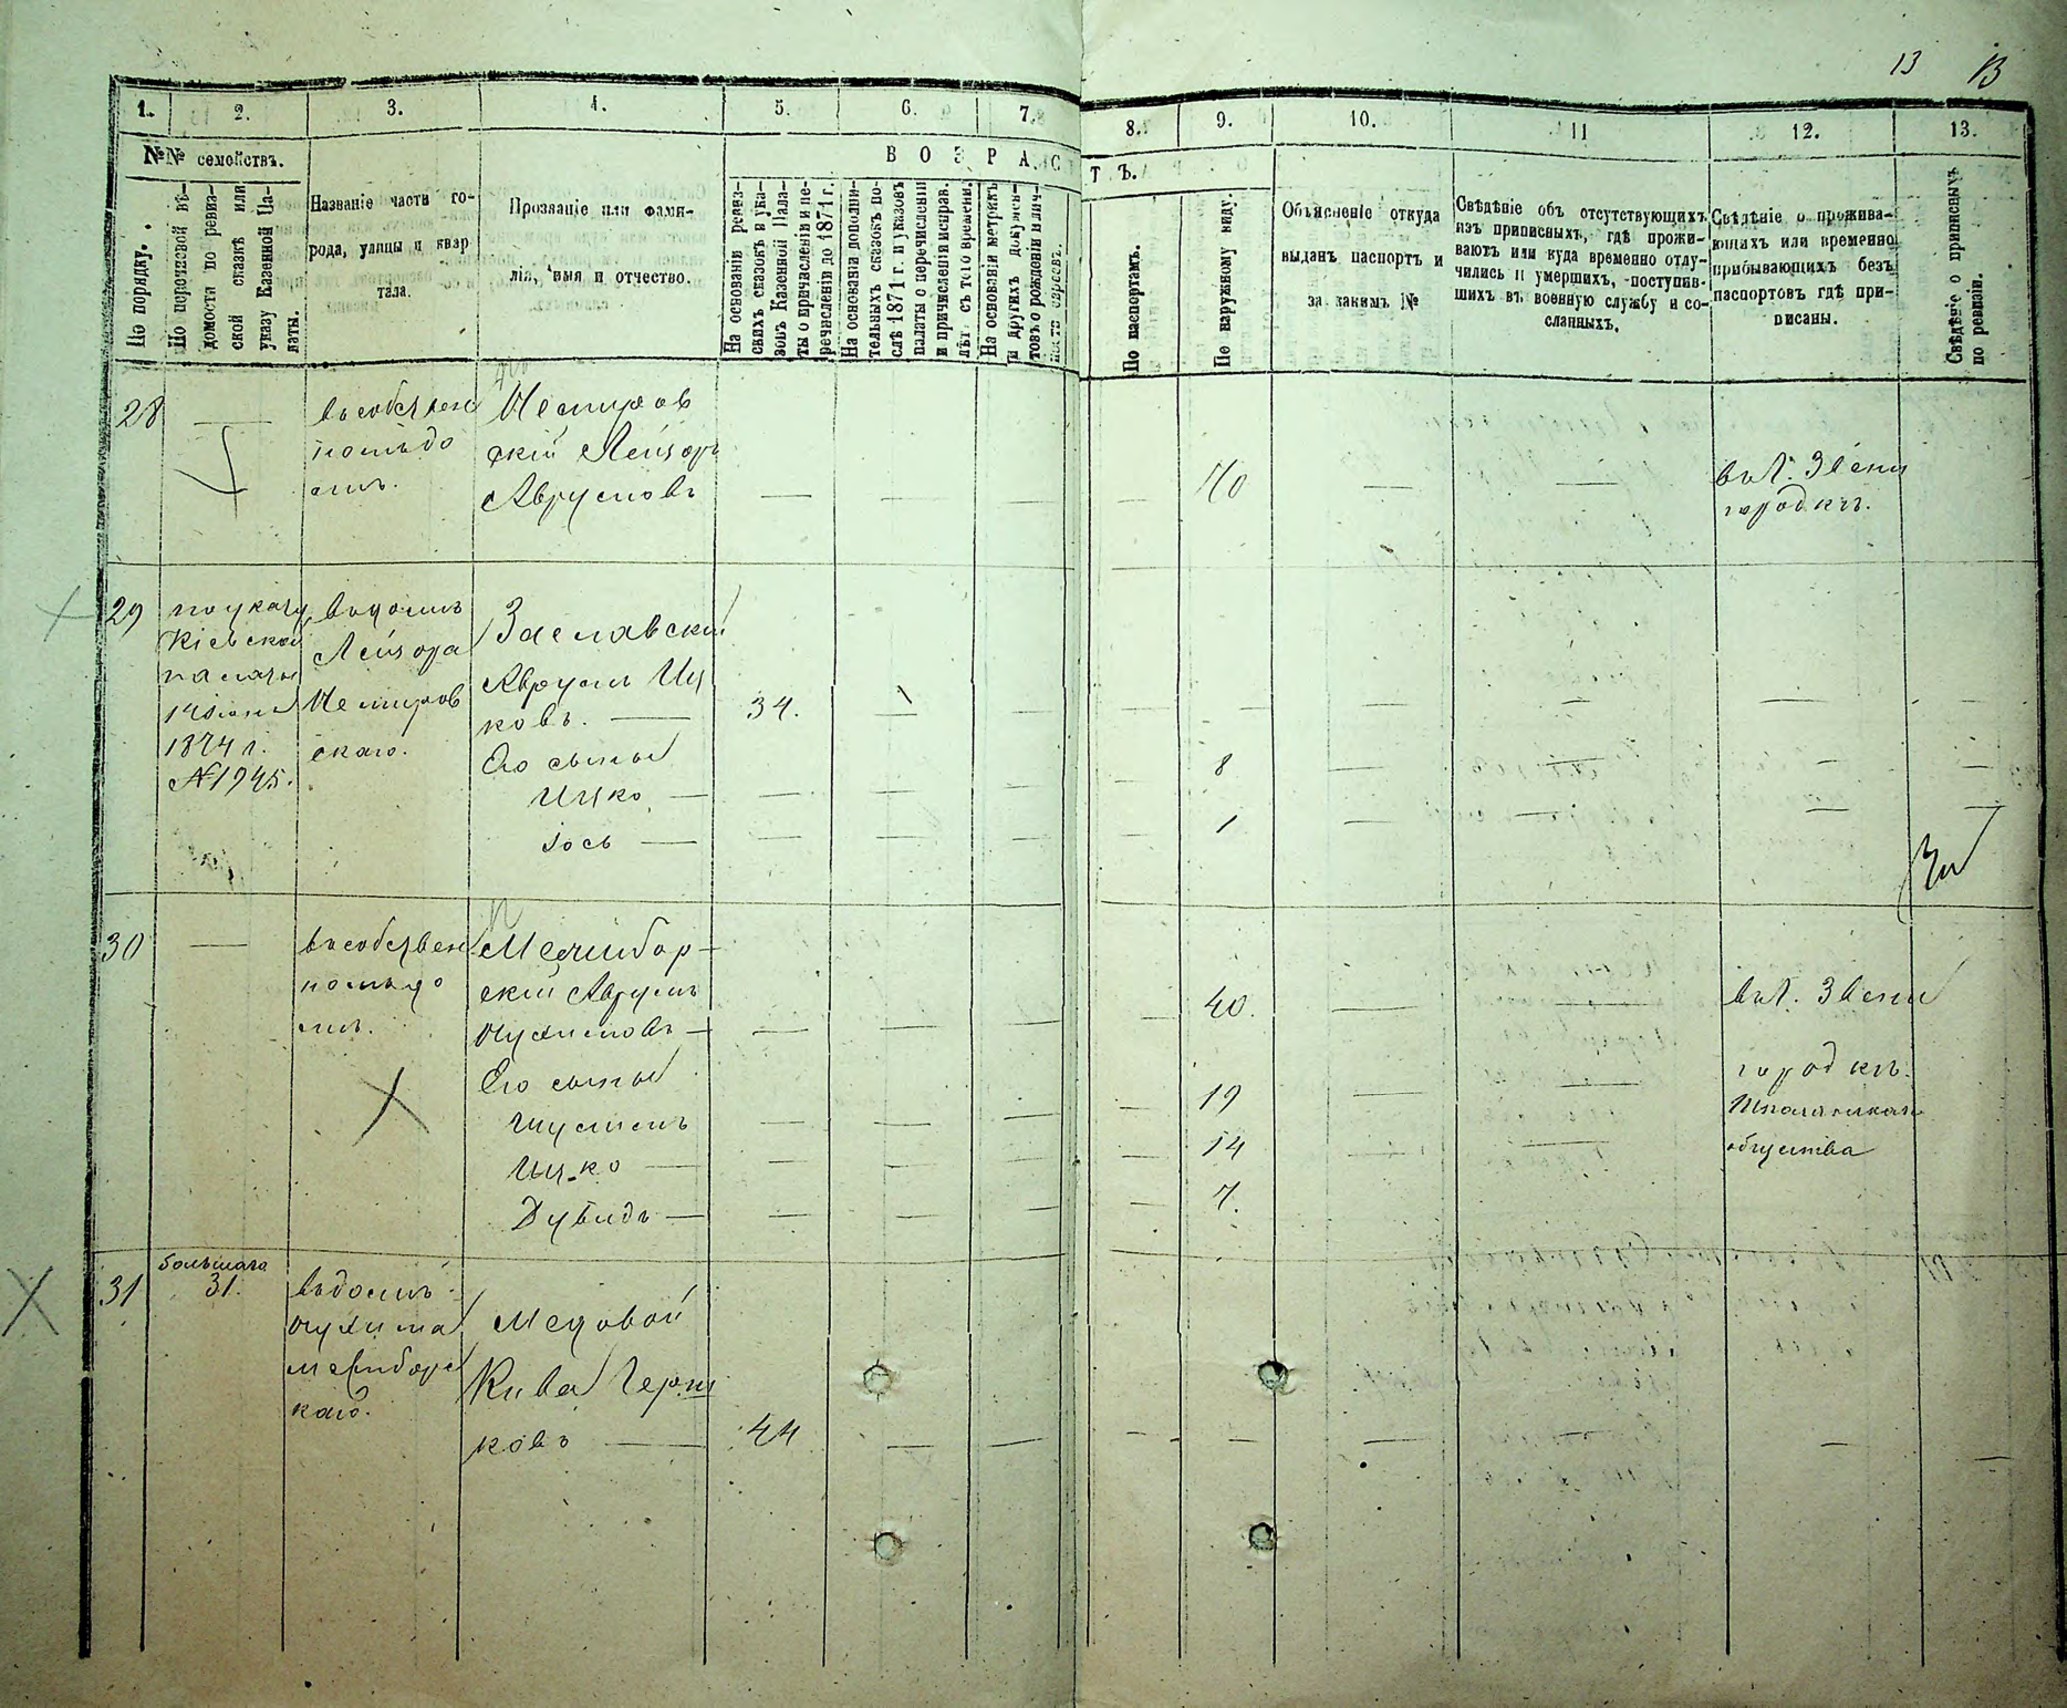 13 13
1. 2. 3. 4. 5. 6. 7. 8. 9. 10. 11 12. 13.
№№ семействъ.
В О З Р А С Т Ъ.
По порядку.
По перечневой вѣ-
домости по ревиз-
ской сказкѣ или
указу Казенной Па-
латы.
Названіе части го-
рода, улицы и квар
тала.
Прозваніе или фами-
лія, имя и отчество.
На основаніи ревиз-
скихъ сказокъ и ука-
зовъ Казенной Пала-
ты о причисленіи и пе-
речисленіи до 1871 г.
На основаніи дополни-
тельныхъ сказокъ по-
слѣ 1871 г. и указовъ
палаты о перечисленіи
и причисленіи исправ.
лѣт. съ того времени.
На основаніи метрикъ
и другихъ докумен-
товъ о рожденіи и лич-
ности евреевъ.
По паспортамъ.
По наружному виду.
Объясненіе откуда
выданъ паспортъ и
за какимъ №
Свѣдѣніе объ отсутствующихъ
изъ приписныхъ, гдѣ прожи-
ваютъ или куда временно отлу-
чились и умершихъ, поступив-
шихъ въ военную службу и со-
сланныхъ.
Свѣдѣніе о прожива-
ющихъ или временно
прибывающихъ безъ
паспортовъ гдѣ при-
писаны.
Свѣдѣніе о приписныхъ
по ревизіи.
28 — въ собствен
номъ до
мѣ.
Немиров
скій Лейзоръ
Аврумовъ — — — — 70 — — въ г. Звени
городкѣ.
29 по указу
Кіевской
палаты
14 іюня
1874 г.
№ 1945.
въ домѣ
Лейзора
Немиров
скаго.
Заславскій
Аврумъ Иц
ковъ. — 34. — — — — — — — —
Его сыны
Ицко — — — — — 8 — — — —
Іось — — — — — 1 — — — —
30 — въ собствен
номъ до
мѣ.
Межибор-
скій Аврумъ
Нухимовъ — — — — — 40. — — въ г. Звени
городкѣ.
Шполянскаго
общества
Его сыны
Шулимъ — — — — 19 — —
Ицко — — — — — 14 — —
Дувидъ — — — — — 7.
31 большаго
31. въ домѣ
Нухима
Межиборс
каго.
Медовой
Кива Герш
ковъ — 44 — — — — — — — —